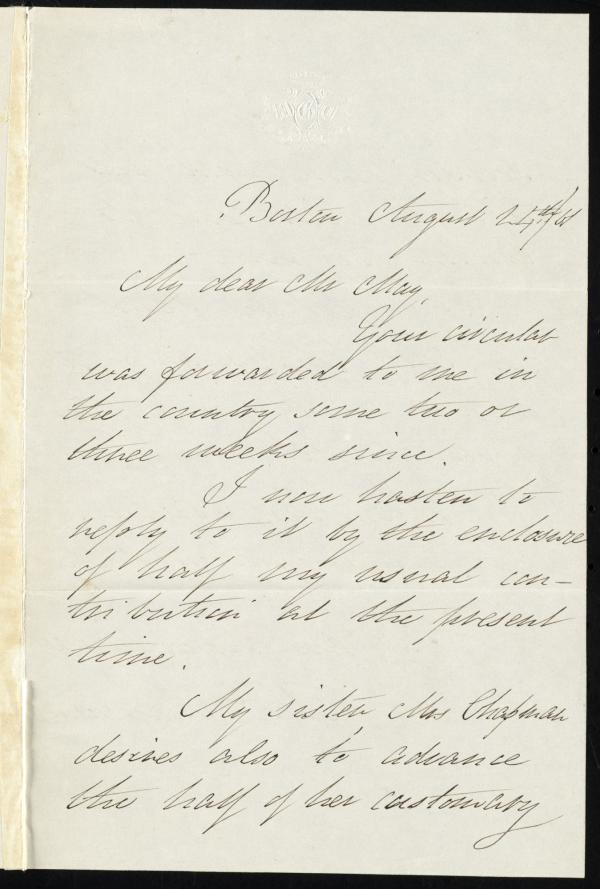 Boston August 24th/61
My dear Mr May,
Your circular
was forwarded to me in
the country some two or
three weeks since.
I now hasten to
reply to it by the enclosure
of half my usual con-
tribution at the present
time.
My sister, Mrs Chapman
desires also to advance
the half of her customary